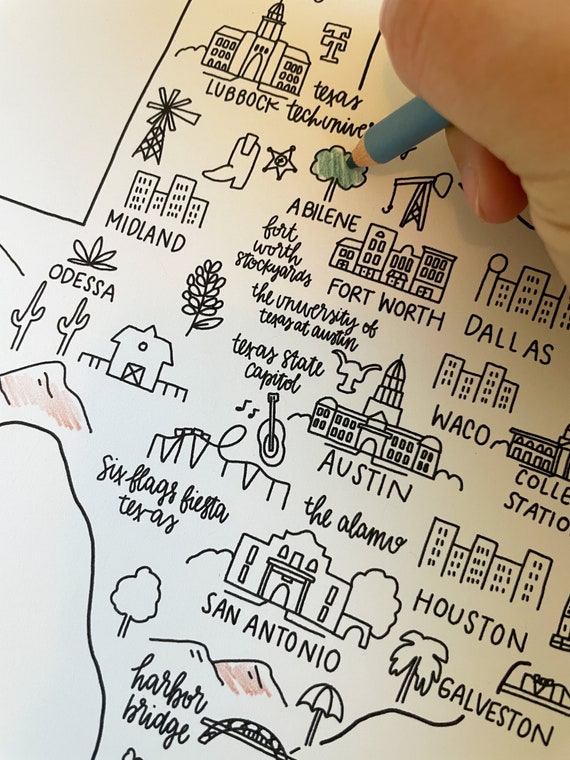 LUBBOCK
texas
tech
MIDLAND
ABILENE
fort
worth
stockyards
FORT WORTH
DALLAS
ODESSA
the university of
texas at austin
texas state
capitol
WACO
AUSTIN
six flags fiesta
texas
the alamo
HOUSTON
SAN ANTONIO
GALVESTON
harbor
bridge